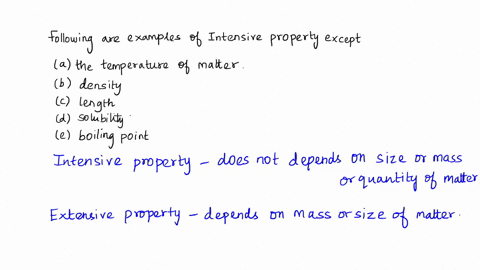 Following are examples of Intensive property except
(a) the temperature of matter.
(b) density
(c) length
(d) solubility
(e) boiling point
Intensive property - does not depends on size or mass
or quantity of matter
Extensive property - depends on mass or size of matter.